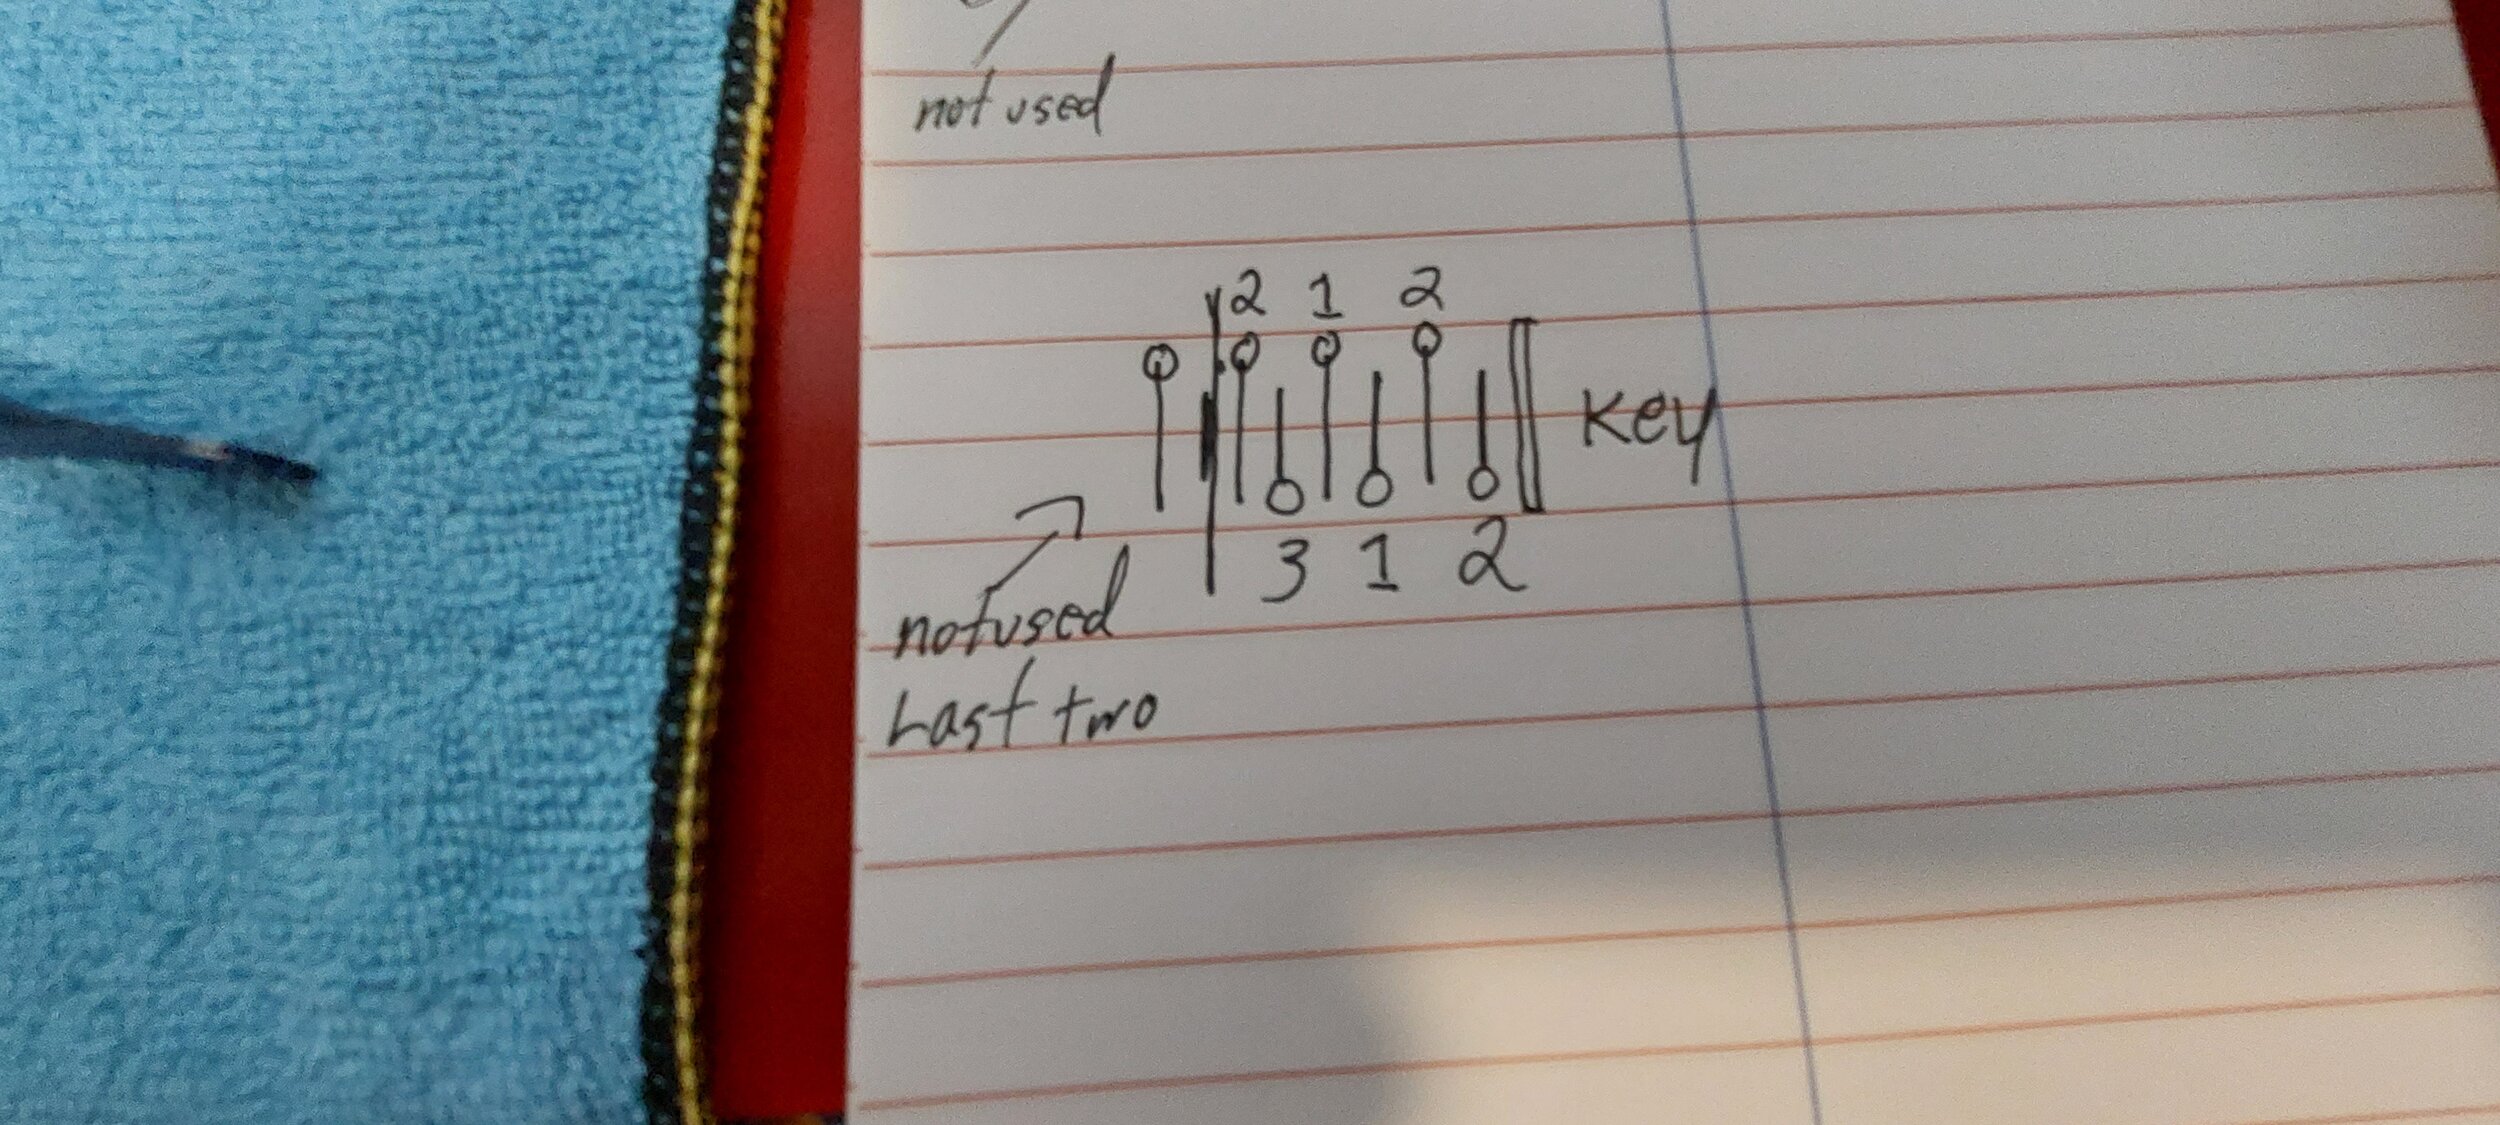 not used
2 1 2
Key
3 1 2
not used
Last two